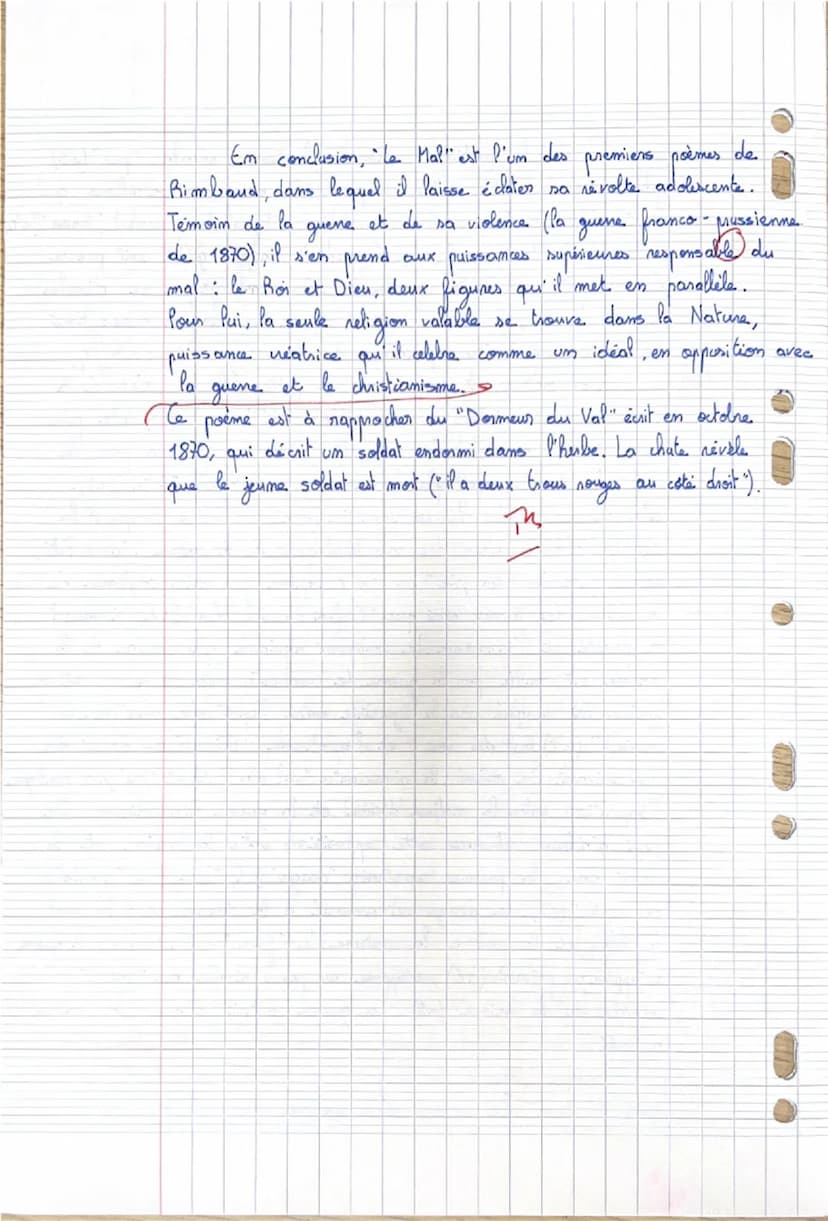 En conclusion, "Le Mal" est l'un des premiers poèmes de
Rimbaud, dans lequel il laisse éclater sa révolte adolescente.
Témoin de la guerre et de sa violence (la guerre franco-prussienne
de 1870), il s'en prend aux puissances supérieures responsable du
mal : le Roi et Dieu, deux figures qu'il met en parallèle.
Pour lui, la seule religion valable se trouve dans la Nature,
puissance créatrice qu'il celebre comme un idéal, en opposition avec
la guerre et le christianisme.
Ce poème est à rapprocher du "Dormeur du Val" écrit en octobre
1870, qui décrit un soldat endormi dans l'herbe. La chute révèle
que le jeune soldat est mort ("il a deux trous rouges au côté droit").
TB